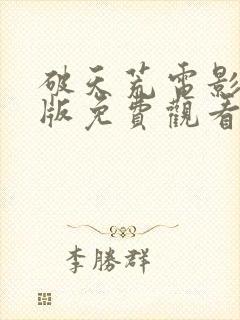 破天荒電影
版免費觀看
李勝群